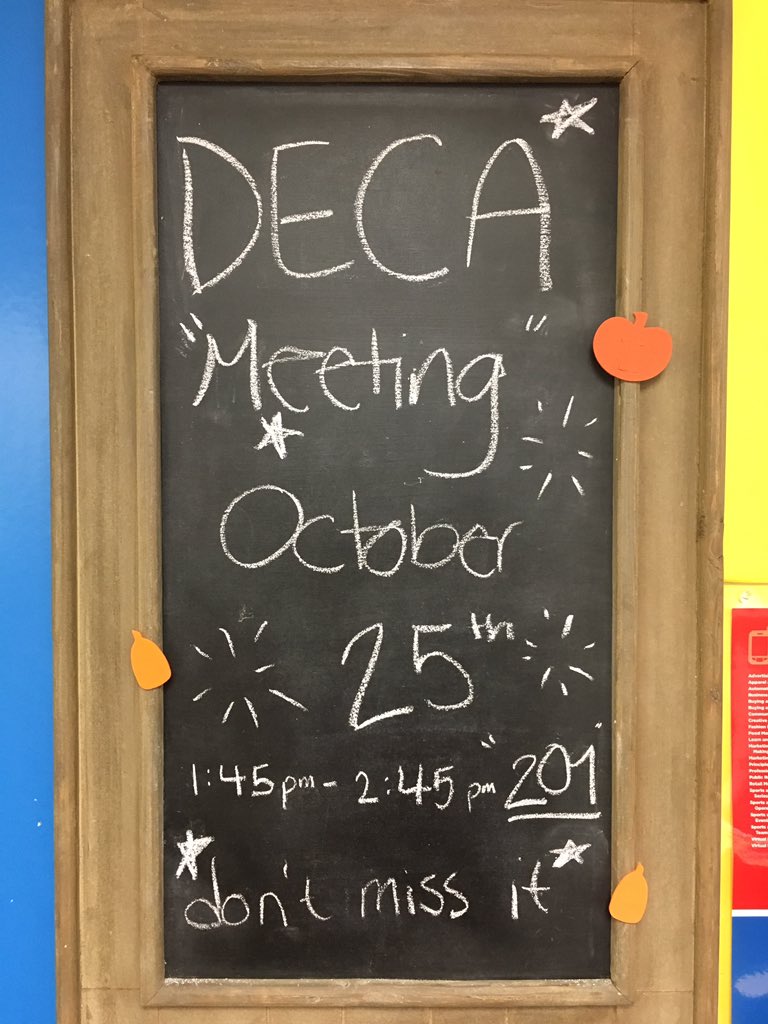 DECA
"Meeting"
October
25th
1:45pm - 2:45pm "201"
don't miss it